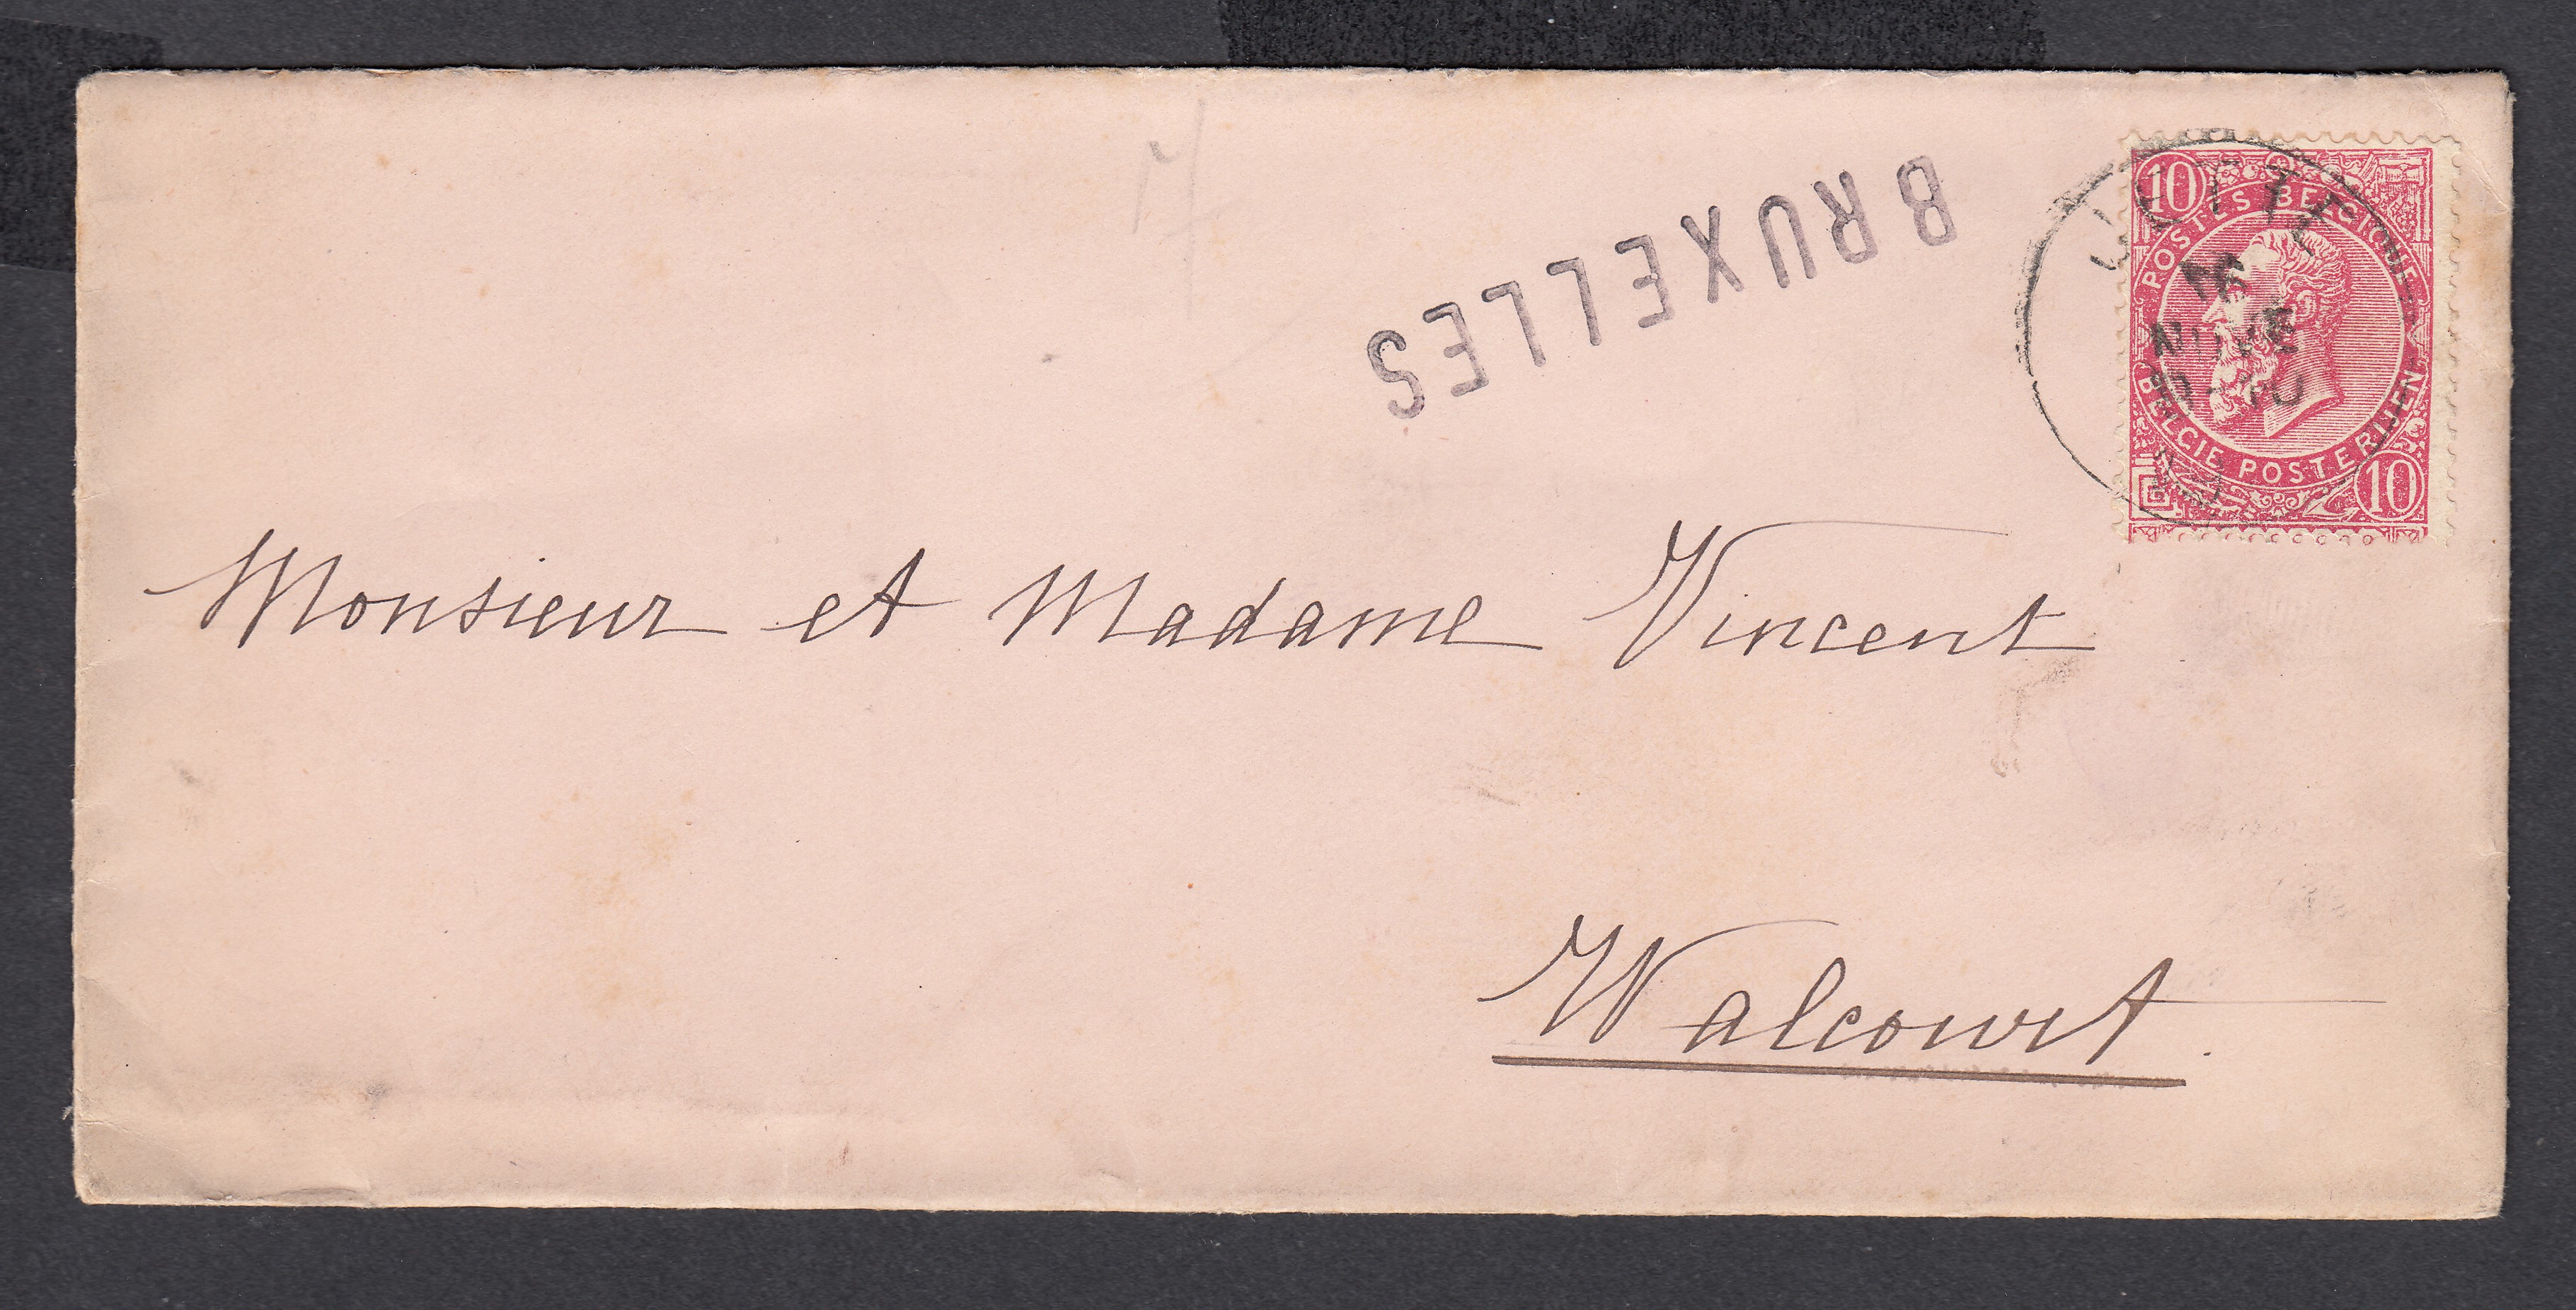 BRUXELLES
10
POSTES BELGIQUE
JETTE
BELGIE POSTERIJEN
10
Monsieur et Madame Vincent
Walcourt.